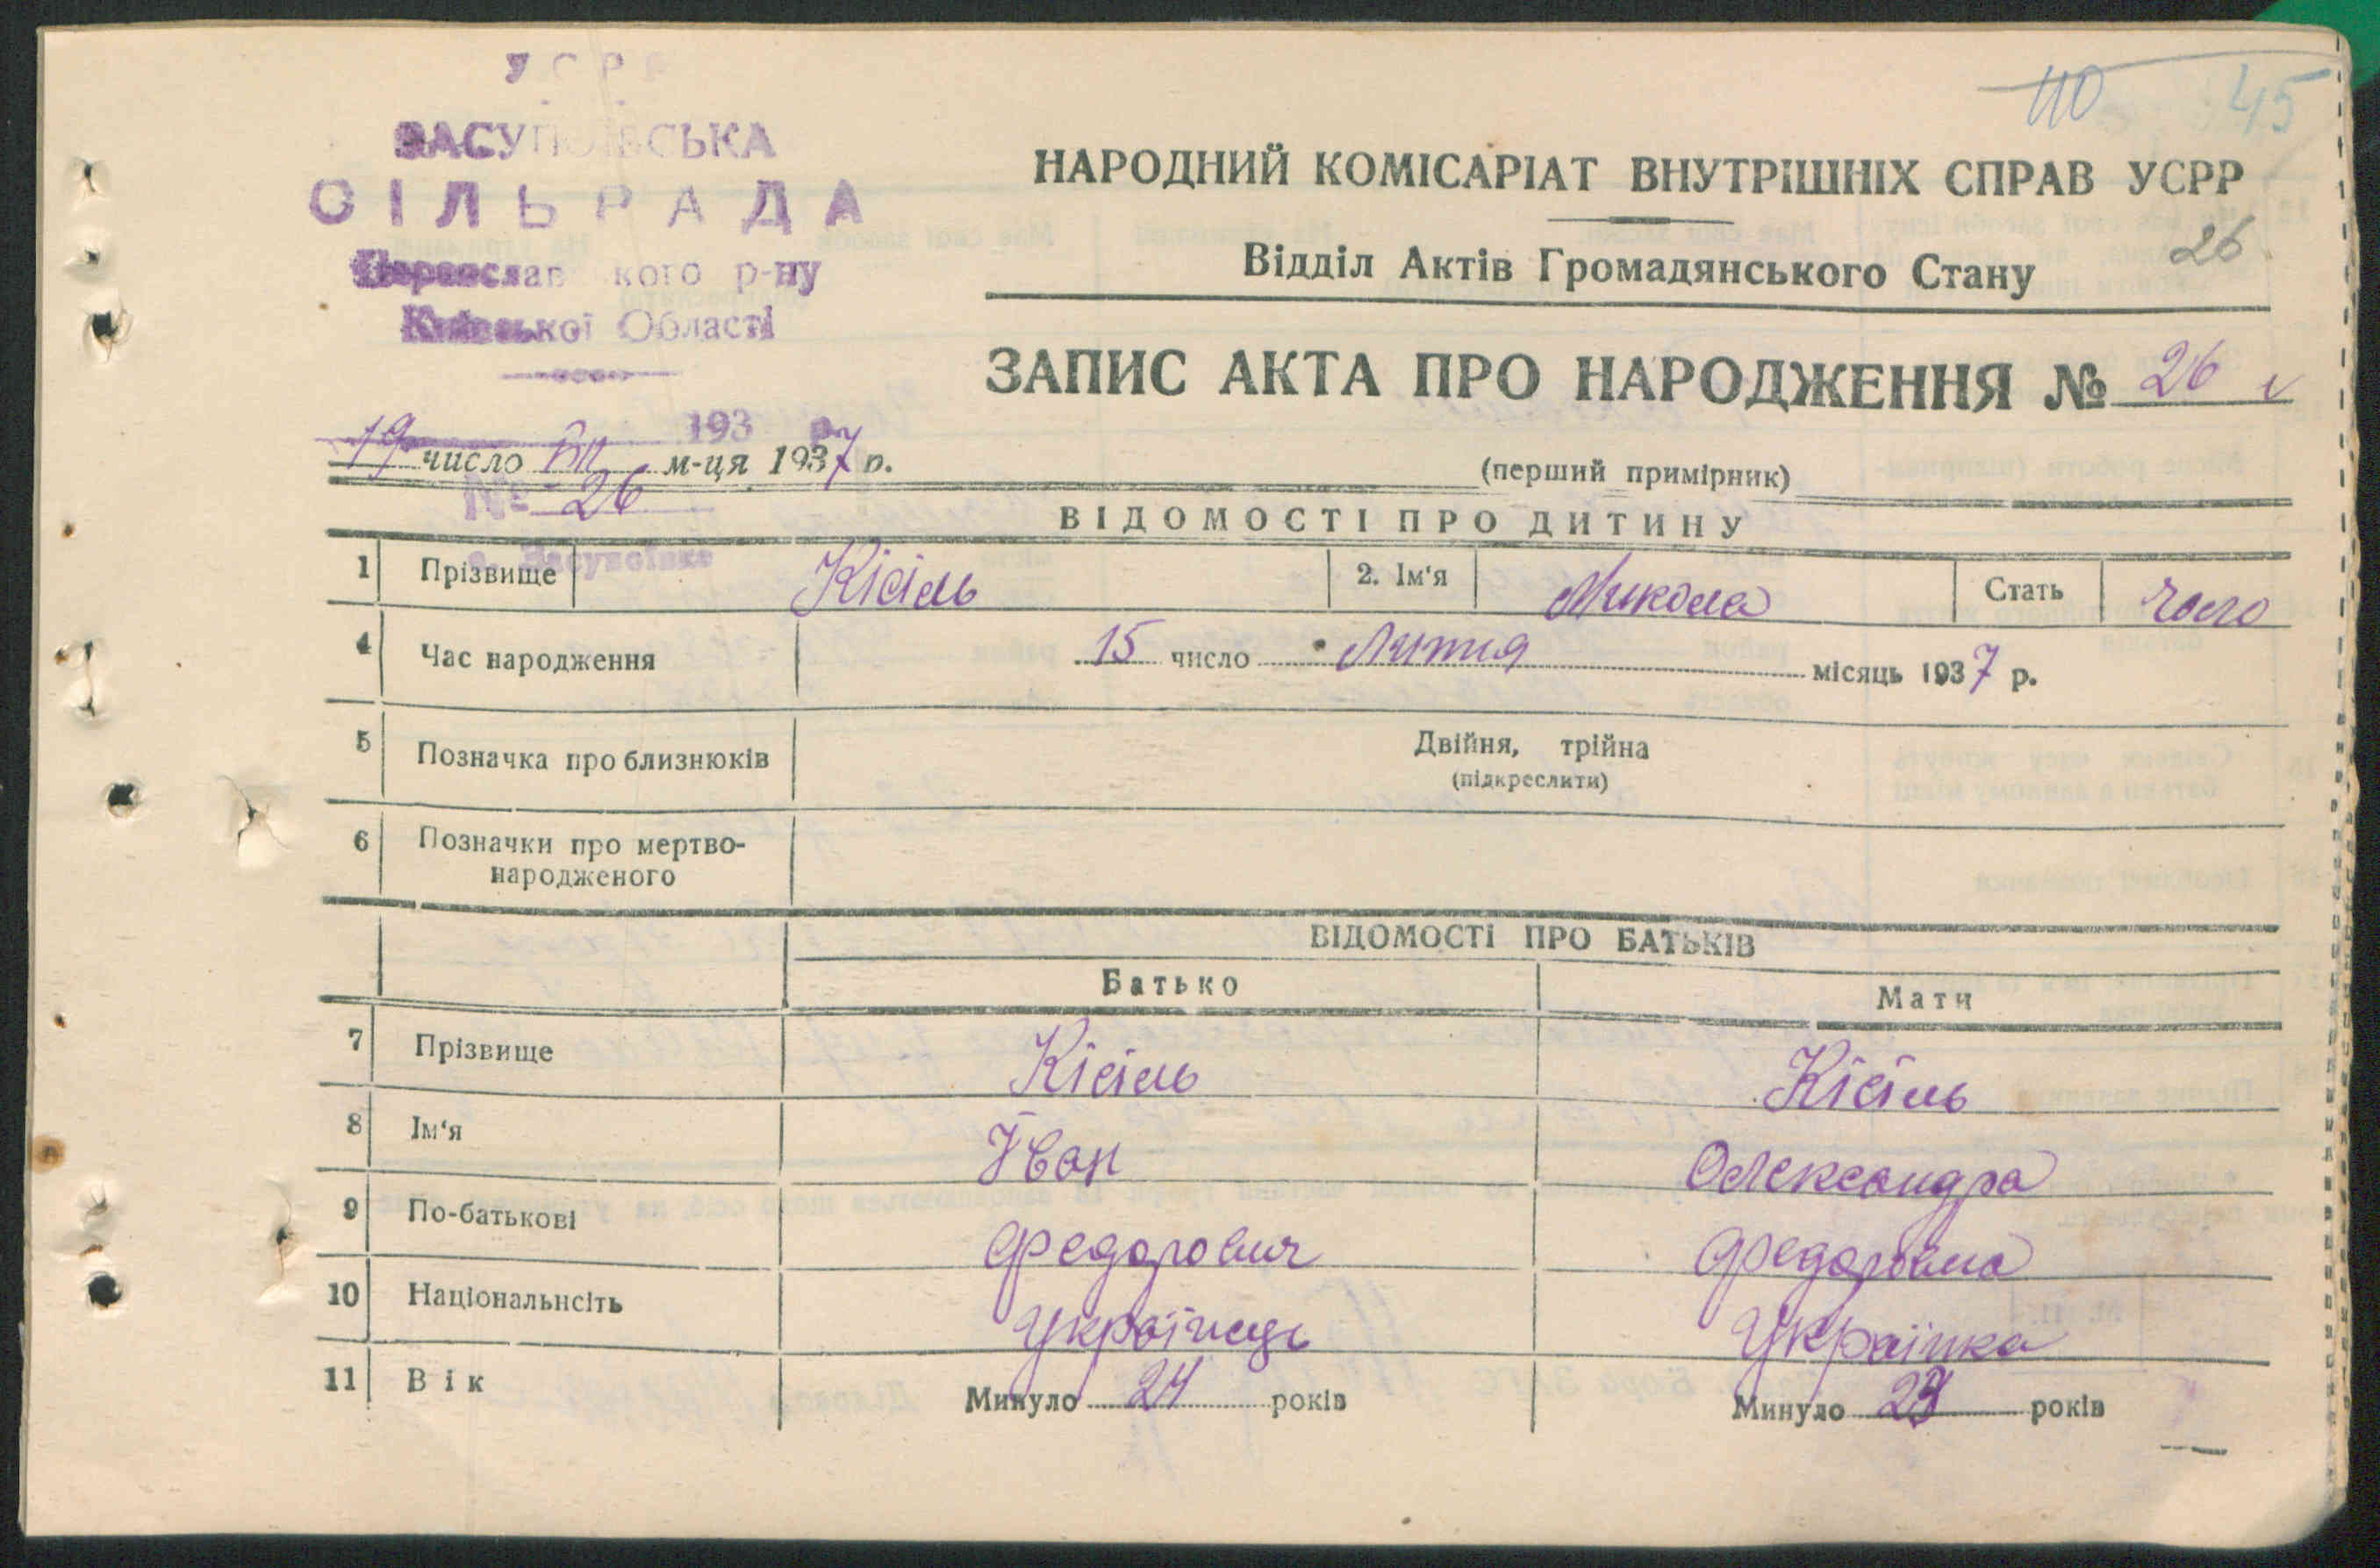 УСРР
ЗАСУПОЇВСЬКА
СІЛЬРАДА
Переяславського р-ну
Київської Області
110 45
НАРОДНИЙ КОМІСАРІАТ ВНУТРІШНІХ СПРАВ УСРР
Відділ Актів Громадянського Стану
26
ЗАПИС АКТА ПРО НАРОДЖЕННЯ № 26
193 р.
19 число м-ця 1937 р.
(перший примірник)
№ 26
ВІДОМОСТІ ПРО ДИТИНУ
с. Засупоївка
1 Прізвище Кісіль 2. Ім'я Микола Стать чоло
4 Час народження 15 число Лютня місяць 1937 р.
5 Позначка про близнюків Двійня, трійна
(підкреслити)
6 Позначки про мертво-
народженого
ВІДОМОСТІ ПРО БАТЬКІВ
Батько Мати
7 Прізвище Кісіль Кісіль
8 Ім'я Іван Олександра
9 По-батькові Федорович Федоровна
10 Національнсіть Українець Українка
11 Вік Минуло 24 років Минуло 23 років